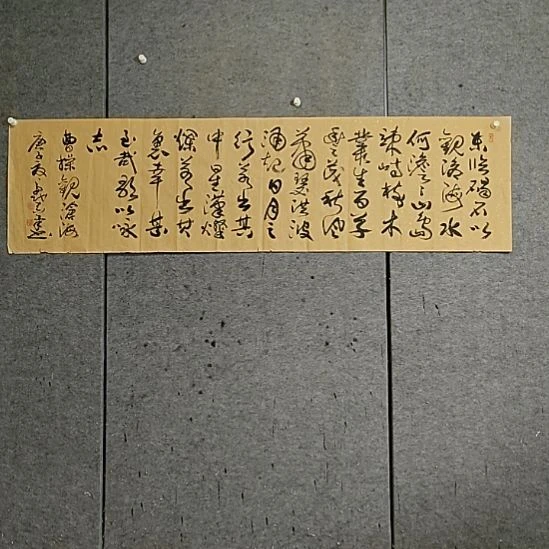 东临碣石以
觀滄海水
何澹々山島
竦峙樹木
叢生百草
豐茂秋風
蕭瑟洪波
涌起日月之
行若出其
中星漢燦
爛若出其
裏幸甚
至哉歌以詠
志
曹操觀滄海
庚子夏